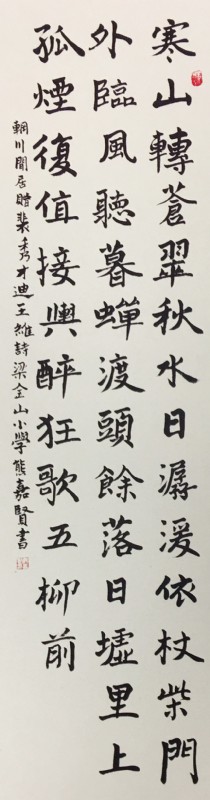 寒山轉蒼翠秋水日潺湲依杖柴門
外臨風聽暮蟬渡頭餘落日墟里上
孤煙復值接輿醉狂歌五柳前
輞川閒居贈裴秀才迪王維詩梁金山小學熊嘉賢書